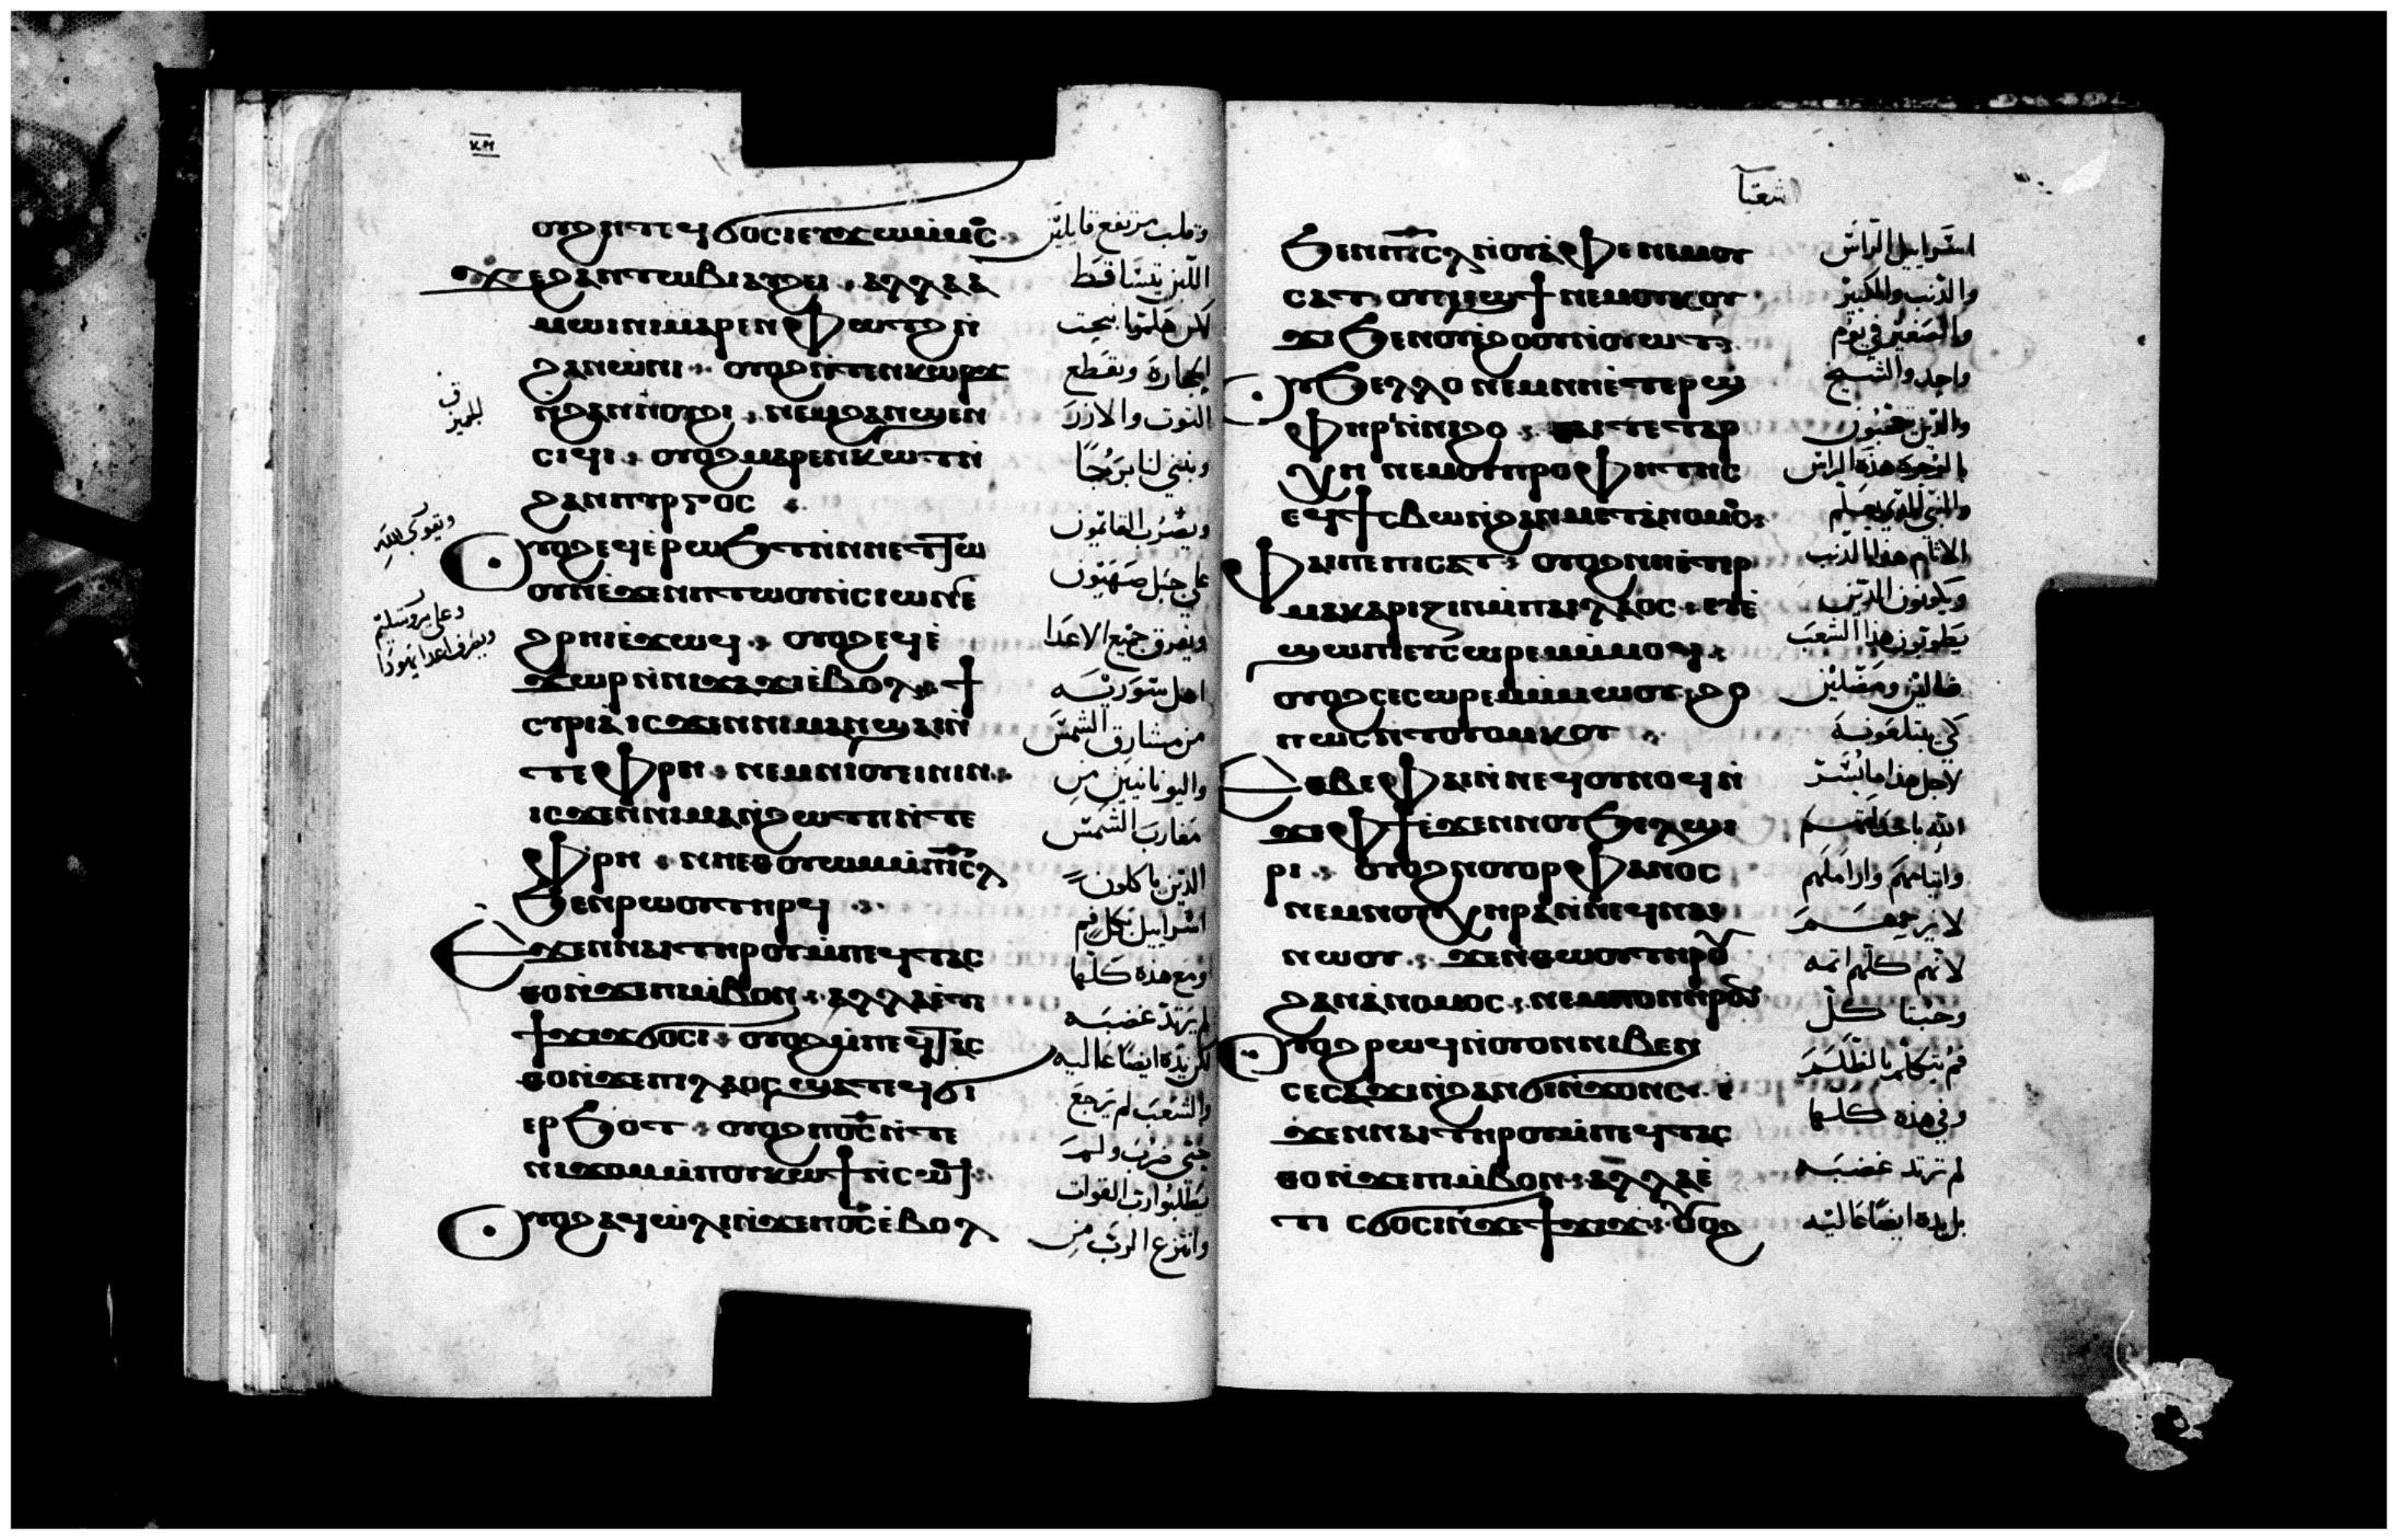 ⲟⲩⲟϩ ⲛⲧⲉϥϭⲟⲥⲓ ⲉⲩϫⲱ ⲙⲙⲟⲥ
ϫⲉ ϩⲁⲛⲧⲱⲃⲓ ⲁⲩϩⲉⲓ . ⲁⲗⲗⲁ ⲁ
ⲙⲱⲓⲛⲓ ⲙⲁⲣⲉⲛⲫⲱⲧϩ ⲛ
ϩⲁⲛⲱⲛⲓ . ⲟⲩⲟϩ ⲛⲧⲉⲛⲕⲱⲣϫ
ⲛϩⲁⲛⲛⲟⲩϩⲓ . ⲛⲉⲙ ϩⲁⲛϣⲉⲛ
ⲥⲓϥⲓ . ⲟⲩⲟϩ ⲙⲁⲣⲉⲛⲕⲱⲧ ⲛ
ϩⲁⲛⲡⲩⲣⲅⲟⲥ
ⲟⲩⲟϩ ⲉϥⲉⲣⲱϧⲧ ⲛⲛⲏⲉⲧⲧⲱ
ⲟⲩⲛ ⲉϫⲉⲛ ⲡⲧⲱⲟⲩ ⲛⲥⲓⲱⲛ ⲉ
ϩⲣⲏⲓ ⲉϫⲱϥ . ⲟⲩⲟϩ ⲉϥⲉ
ϫⲱⲣ ⲛⲛⲓϫⲁϫⲓ ⲉⲃⲟⲗ . ϯ
ⲥⲩⲣⲓⲁ ⲓⲥϫⲉⲛ ⲛⲓⲙⲁⲛϣⲁⲓ ⲛ
ⲧⲉ ⲫⲣⲏ . ⲛⲉⲙ ⲛⲓⲟⲩⲉⲓⲛⲓⲛ .
ⲓⲥϫⲉⲛ ⲛⲓⲙⲁⲛϩⲱⲧⲡ ⲛⲧⲉ
ⲫⲣⲏ . ⲛⲏⲉⲑⲟⲩⲱⲙ ⲙⲡⲓⲥⲗ
ϧⲉⲛ ⲣⲱⲟⲩ ⲧⲏⲣϥ
ⲉϫⲉⲛ ⲛⲁⲓ ⲧⲏⲣⲟⲩ ⲙⲡⲉϥⲧⲁⲥ
ⲑⲟ ⲛϫⲉ ⲡⲓⲙⲃⲟⲛ . ⲁⲗⲗⲁ ⲉⲧⲓ
ϯϫⲓϫ ϭⲟⲥⲓ . ⲟⲩⲟϩ ⲙⲡⲉϥⲧⲁⲥ
ⲑⲟ ⲛϫⲉ ⲡⲓⲗⲁⲟⲥ ϣⲁⲧⲉϥϭⲓ
ⲉⲣϧⲟⲧ . ⲟⲩⲟϩ ⲡⲟⲥ ⲛⲧⲉ
ⲛⲓϫⲟⲙ ⲙⲡⲟⲩⲕⲱϯ ⲛⲥⲱϥ .
ⲟⲩⲟϩ ⲁϥⲱⲗⲓ ⲛϫⲉ ⲡⲟⲥ ⲉⲃⲟⲗ
وقلب مرتفع قايلين
اللبن تساقط
لكن هلموا ننحت
الحجارة ونقطع
التوت والارز
ونبني لنا برجًا
ويضرب القائمون
على جبل صهيون
ويفرق جميع الاعدا
اهل سورية
من مشارق الشمس
واليونانيين من
مغارب الشمس
الذين ياكلون
اسراييل بكل فم
ومع هذه كلها
لم يرتد غضبه
لكن يده ايضًا عالية
والشعب لم يرجع
حتى ضرب ولم
يطلبوا رب القوات
وانتزع الرب من
ويقوي الله
وعلى يروشليم
اشعيا
ϧⲉⲛ ⲡⲓⲥⲗ ⲛⲟⲩⲁⲫⲉ ⲛⲉⲙ ⲟⲩ
ⲥⲁⲧ . ⲟⲩⲛⲓϣϯ ⲛⲉⲙ ⲟⲩⲕⲟⲩ
ϫⲓ ϧⲉⲛ ⲟⲩⲉϩⲟⲟⲩ ⲛⲟⲩⲱⲧ .
ⲟⲩϧⲉⲗⲗⲟ ⲛⲉⲙ ⲛⲏⲉⲧⲉⲣϣ
ⲫⲏⲣⲓ ⲛⲛⲓϩⲟ . ⲑⲁⲓ ⲧⲉ ⲧⲁⲣ
ⲭⲏ ⲛⲉⲙ ⲟⲩⲡⲣⲟⲫⲏⲧⲏⲥ
ⲉϥϯⲥⲃⲱ ⲛϩⲁⲛⲙⲉⲧⲁⲛⲟⲙⲟⲥ .
ⲫⲁⲓ ⲡⲉ ⲡⲓⲥⲁⲧ . ⲟⲩⲟϩ ⲛⲏⲉⲧⲉⲣ
ⲙⲁⲕⲁⲣⲓⲍⲓⲛ ⲙⲡⲁⲓⲗⲁⲟⲥ . ⲉⲩⲉ
ϣⲱⲡⲓ ⲉⲩⲥⲱⲣⲉⲙ ⲙⲙⲟϥ .
ⲟⲩⲟϩ ⲥⲉⲥⲱⲣⲉⲙ ⲙⲙⲱⲟⲩ . ϩⲟ
ⲡⲱⲥ ⲛⲧⲟⲩⲟⲙⲕⲟⲩ
ⲉⲑⲃⲉ ⲫⲁⲓ ⲛⲛⲉϥⲟⲩⲛⲟϥ ⲛ
ϫⲉ ⲫϯ ⲉϫⲉⲛ ⲛⲟⲩϧⲉⲗϣⲓ
ⲣⲓ . ⲟⲩⲟϩ ⲛⲟⲩⲟⲣⲫⲁⲛⲟⲥ
ⲛⲉⲙ ⲛⲟⲩⲭⲏⲣⲁ ⲛⲛⲉϥⲛⲁⲓ
ⲛⲱⲟⲩ . ϫⲉ ⲛⲑⲱⲟⲩ ⲧⲏⲣⲟⲩ
ϩⲁⲛⲁⲛⲟⲙⲟⲥ . ⲛⲉⲙ ⲡⲟⲛⲏⲣⲟⲥ
ⲟⲩⲟϩ ⲣⲱϥ ⲛⲟⲩⲟⲛ ⲛⲓⲃⲉⲛ
ⲥⲉⲥⲁϫⲓ ⲛϩⲁⲛϭⲓⲛϫⲟⲛⲥ . ⲉ
ϫⲉⲛ ⲛⲁⲓ ⲧⲏⲣⲟⲩ ⲙⲡⲉϥⲧⲁⲥ
ⲑⲟ ⲛϫⲉ ⲡⲓⲙⲃⲟⲛ . ⲁⲗⲗⲁ ⲉ
ⲧⲓ ⲥϭⲟⲥⲓ ⲛϫⲉ ϯϫⲓϫ . ⲟⲩⲟϩ
اسراييل الراس
والذنب والكبير
والصغير في يوم
واحد والشيخ
والذين يتعجبون
بالوجوه هذه الراس
والنبي الذي يعلم
الاثام هذا الذنب
ويكونون الذين
يطوبون هذا الشعب
ضالين ومضلين
كي يبتلعونه
لاجل هذا ما يُسر
الله باحداثهم
وايتامهم واراملهم
لا يرحمهم
لانهم كلهم اثمه
وخبثا كل
فم يتكلم بالظلم
وفي هذه كلها
لم ترتد غضبه
بل يده ايضًا عالية